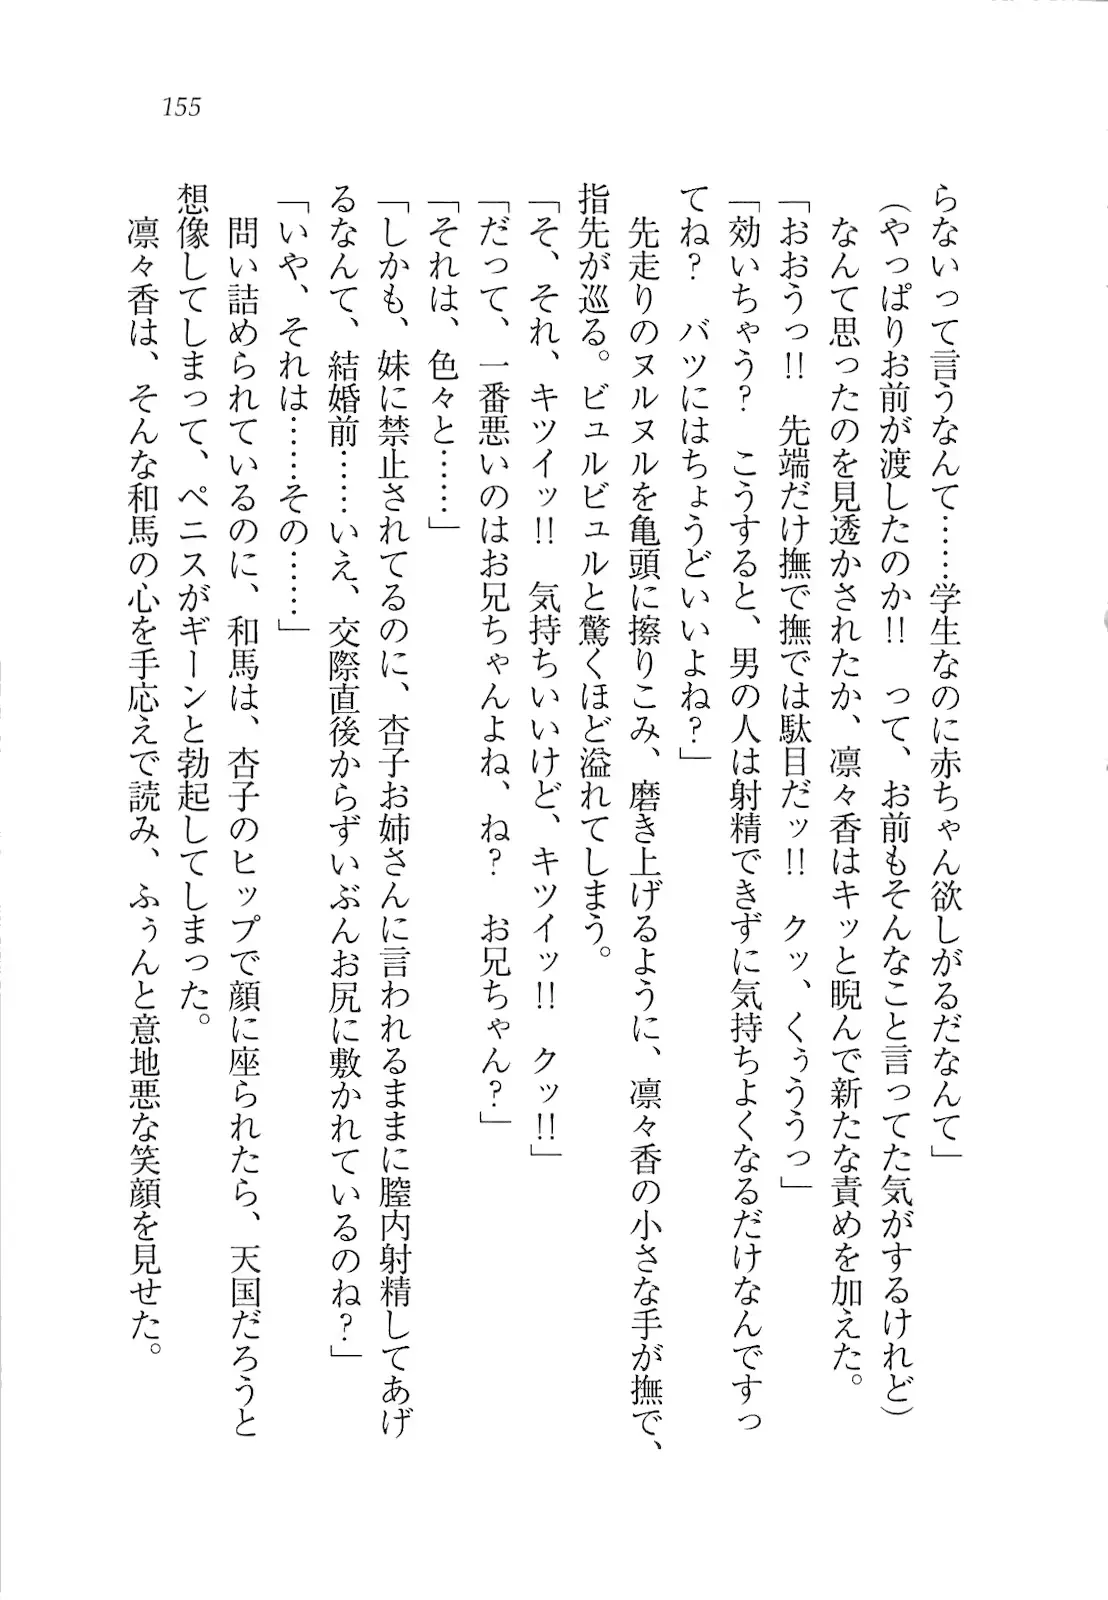 155
らないって言うなんて……学生なのに赤ちゃん欲しがるだなんて」
（やっぱりお前が渡したのか!!　って、お前もそんなこと言ってた気がするけれど）
なんて思ったのを見透かされたか、凛々香はキッと睨んで新たな責めを加えた。
「おおうっ!!　先端だけ撫で撫では駄目だッ!!　クッ、くぅううっ」
「効いちゃう？　こうすると、男の人は射精できずに気持ちよくなるだけなんですっ
てね？　バツにはちょうどいいよね？」
先走りのヌルヌルを亀頭に擦りこみ、磨き上げるように、凛々香の小さな手が撫で、
指先が巡る。ビュルビュルと驚くほど溢れてしまう。
「そ、それ、キツイッ!!　気持ちいいけど、キツイッ!!　クッ!!」
「だって、一番悪いのはお兄ちゃんよね、ね？　お兄ちゃん？」
「それは、色々と……」
「しかも、妹に禁止されてるのに、杏子お姉さんに言われるままに膣内射精してあげ
るなんて、結婚前……いえ、交際直後からずいぶんお尻に敷かれているのね？」
「いや、それは……その……」
問い詰められているのに、和馬は、杏子のヒップで顔に座られたら、天国だろうと
想像してしまって、ペニスがギーンと勃起してしまった。
凛々香は、そんな和馬の心を手応えで読み、ふぅんと意地悪な笑顔を見せた。